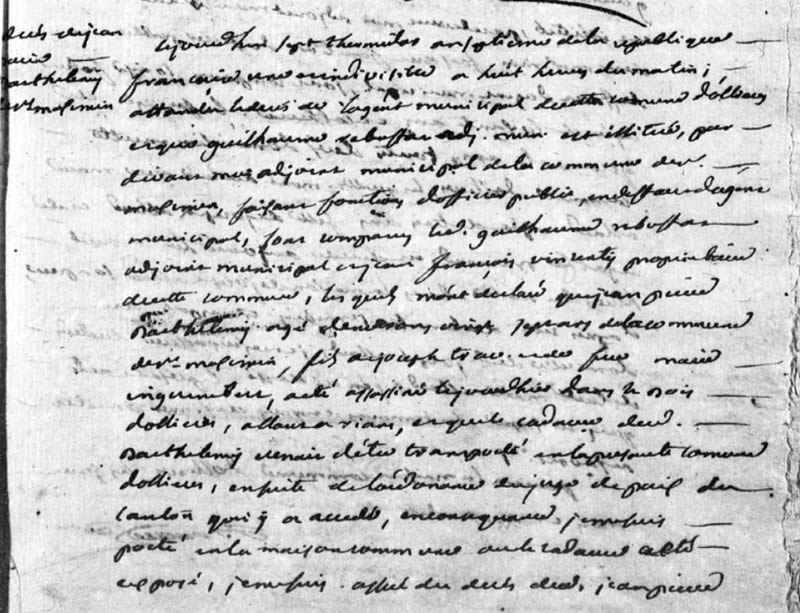 deces de jean
pierre
Barthelemy
de st maximin
ce jourdhui sept thermidor an septieme de la republique
francaise une et indivisible a huit heures du matin;
attandu ladeces de lagent municipal de cette comune d'ollieres
et que guilhaume rebuffat adj. muni est illitré, par
devant moi adjoint municipal de la commune de st.
maximin, faisant fonctions d'officier public, en deffaut dagent
municipal, sont comparus led. guilhaume rebuffat
adjoint municipal et jean françois vincents proprietaire
de cette commune, lesquels m'ont declaré que jean pierre
Barthelemy agé denviron vingt sept ans de la commune
de st. maximin, fils a joseph trav. et de feue marie
a eté assassiné cejourdhui dans le Bois
dollieres, allant a rians, et que le cadavre dud.
Barthelemy venait d'être transporté en la presente commune
dollieres, en suite de lordonnance du juge de paix du
canton qui y a accedé, en consequence je me suis
porté en la maison commune ou le cadavre a eté
exposé, je me suis assuré du deces dud. jean pierre